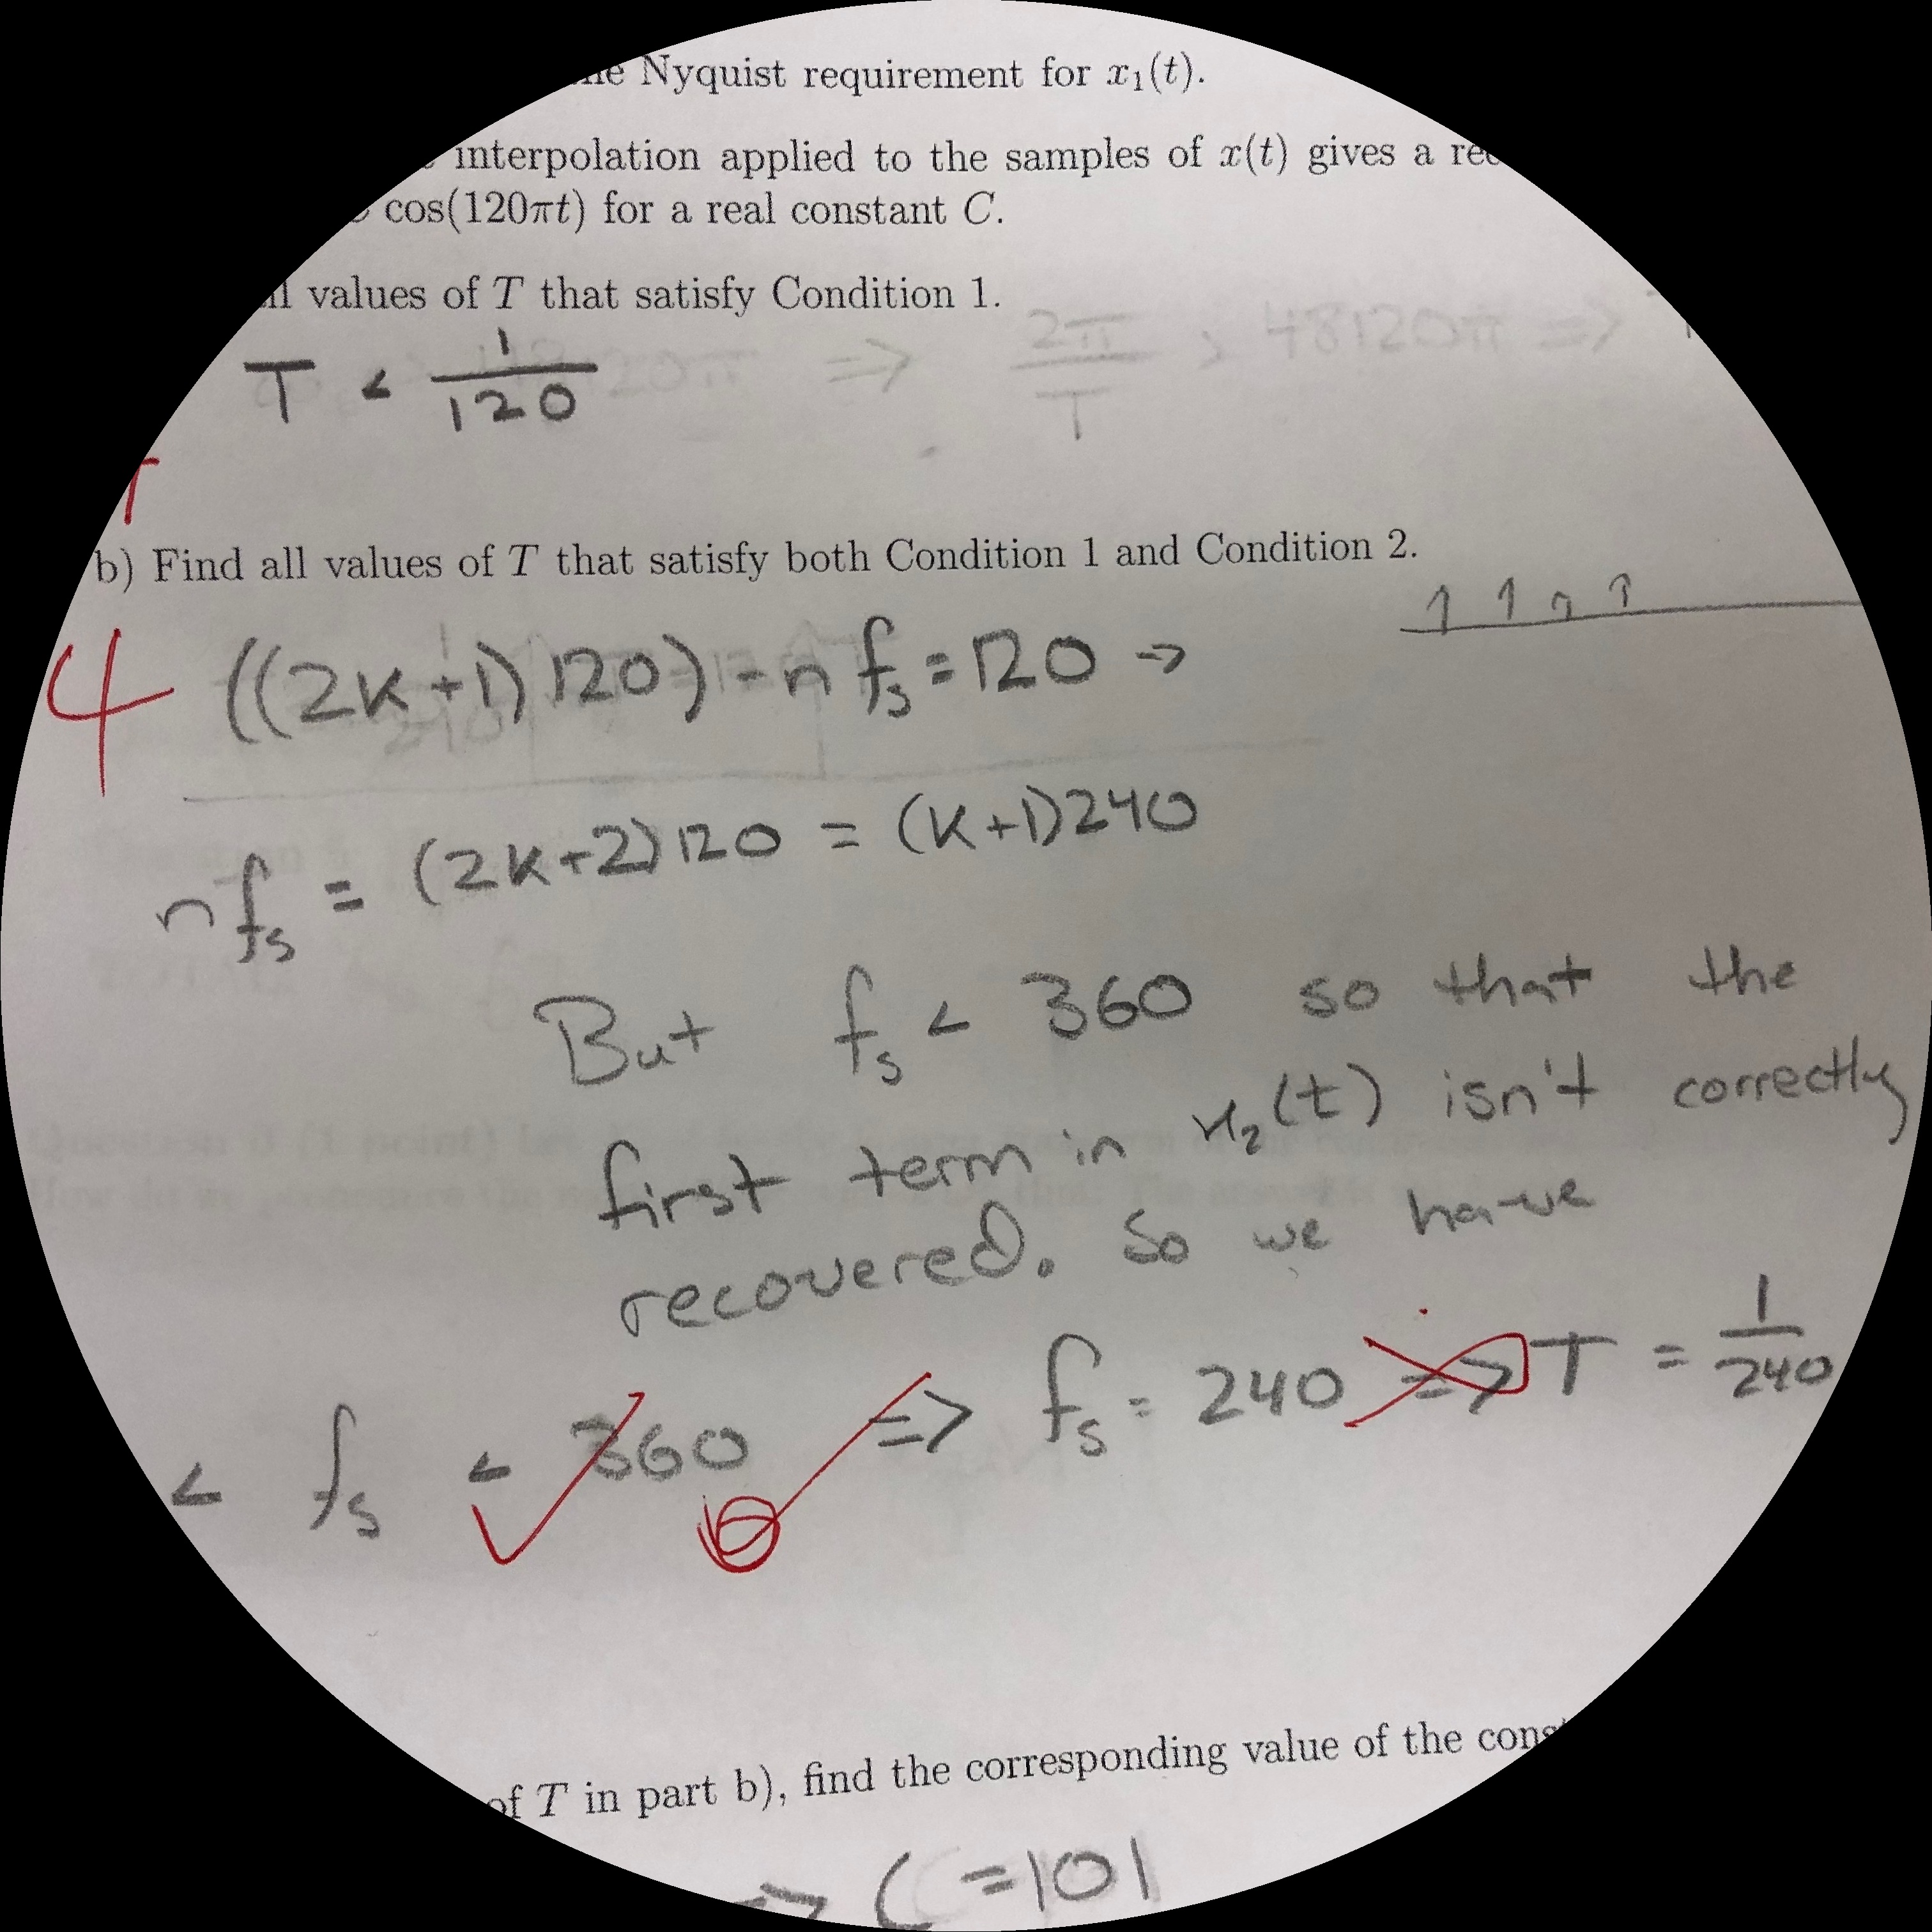 Nyquist requirement for x₁(t).
interpolation applied to the samples of x(t) gives a
cos(120πt) for a real constant C.
values of T that satisfy Condition 1.
2π/T > 48120π =>
T < 1/120
b) Find all values of T that satisfy both Condition 1 and Condition 2.
4 ((2k+1)120) - n fs = 120 →
n fs = (2k+2)120 = (k+1)240
But fs < 360 so that the
first term in x₂(t) isn't correctly
recovered. So we have
< fs < 360 => fs = 240 => T = 1/240
of T in part b), find the corresponding value of the
=> C = 101